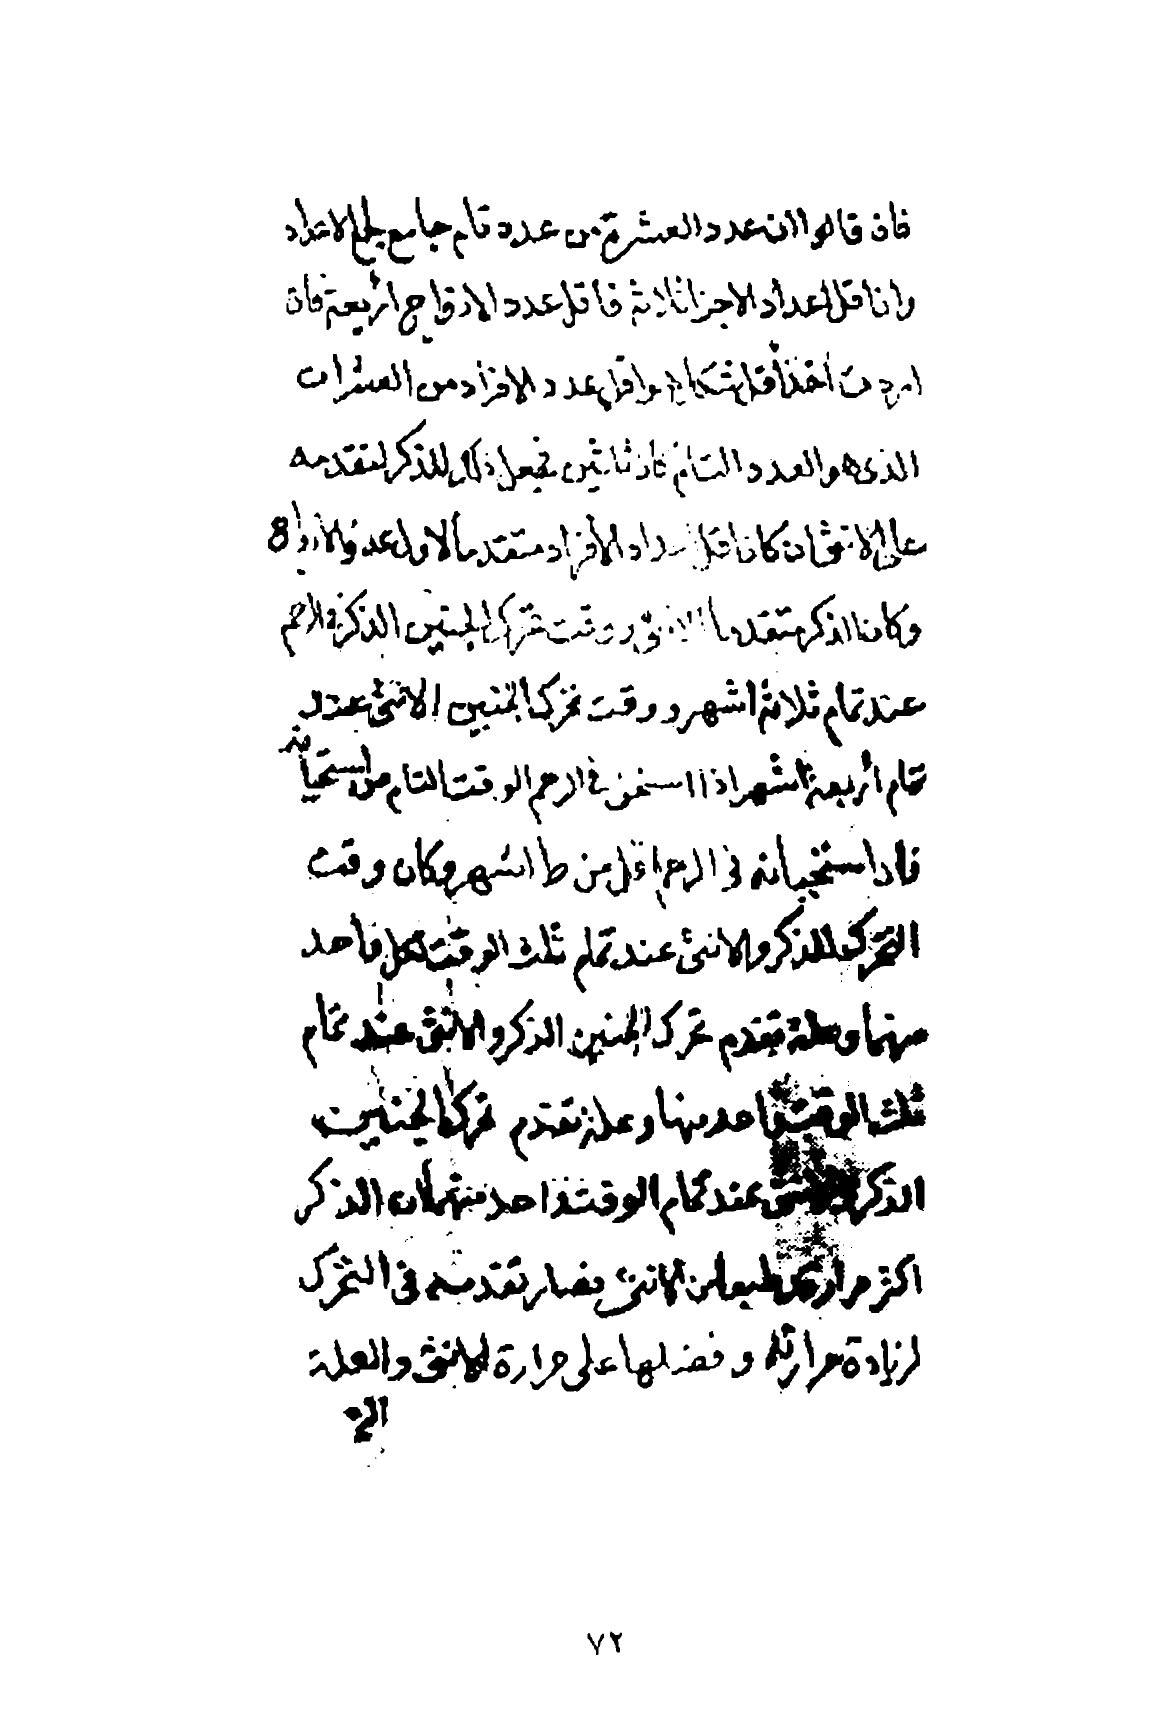 فان قالوا ان عدد العشرة من عدد تام جامع لجميع الاعداد
وانا قل اعداد الاجزا ثلاثة فاقل عدد الازواج أربعة فان
اردت عدد الافراد من العشرات
الذي هو العدد التام كان ثلاثين فجعل ذلك للذكر لتقدمه
على الانثى كان اقل الأفراد متقدما لاول عدد الازواج
وكان الذكر متقدما الانثى ووقت تحرك الجنين الذكر في الرحم
عند تمام ثلاثة اشهر ووقت تحرك الجنين الانثى عند
تمام أربعة اشهر اذا في الرحم الوقت التام من
فاذا في الرحم اقل من ط اشهر وكان وقت
التحرك للذكر والانثى عند تمام ثلث الوقت لكل واحد
منهما وعلة تقدم تحرك الجنين الذكر والانثى عند تمام
ثلث الوقت واحد منهما وعلة تقدم تحرك الجنين
الذكر والانثى عند تمام الوقت واحد منهما لان الذكر
اكثر حرارة طبعا من الانثى فصار تقدمه في التحرك
لزيادة حرارته وفضلها على حرارة الانثى والعلة
٧٢